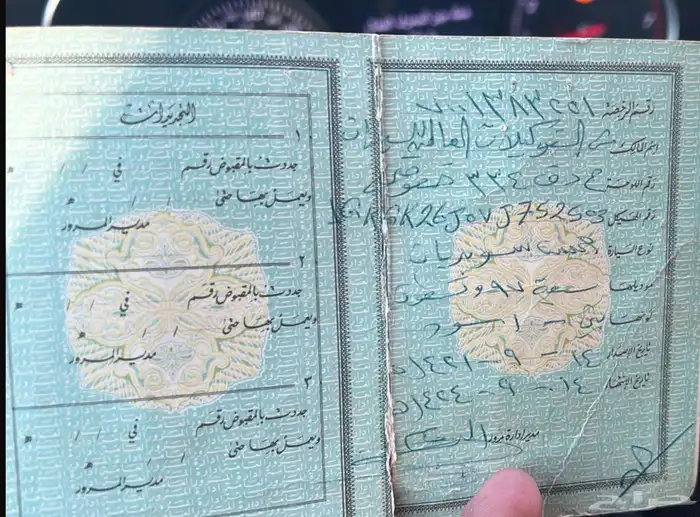 رقم الرخصة
اسم المالك ش التوكيلات العالمية للسيارات
رقم اللوحة ٣٣٤
رقم الهيكل
نوع السيارة جمس سوبربان
موديلها سبعة ٩٧ وتسعون
لونها اسود
تاريخ الاصدار ١٤ - ٩ - ١٤٢١ هـ
تاريخ الانتهاء ١٤ - ٩ - ١٤٢٤ هـ
مدير إدارة مرور
التجديدات
١
جددت بالمقبوض رقم في / /
ويعمل بها حتى / /
مدير المرور
٢
جددت بالمقبوض رقم في / /
ويعمل بها حتى / /
مدير المرور
٣
جددت بالمقبوض رقم في / /
ويعمل بها حتى / /
مدير المرور
حراج